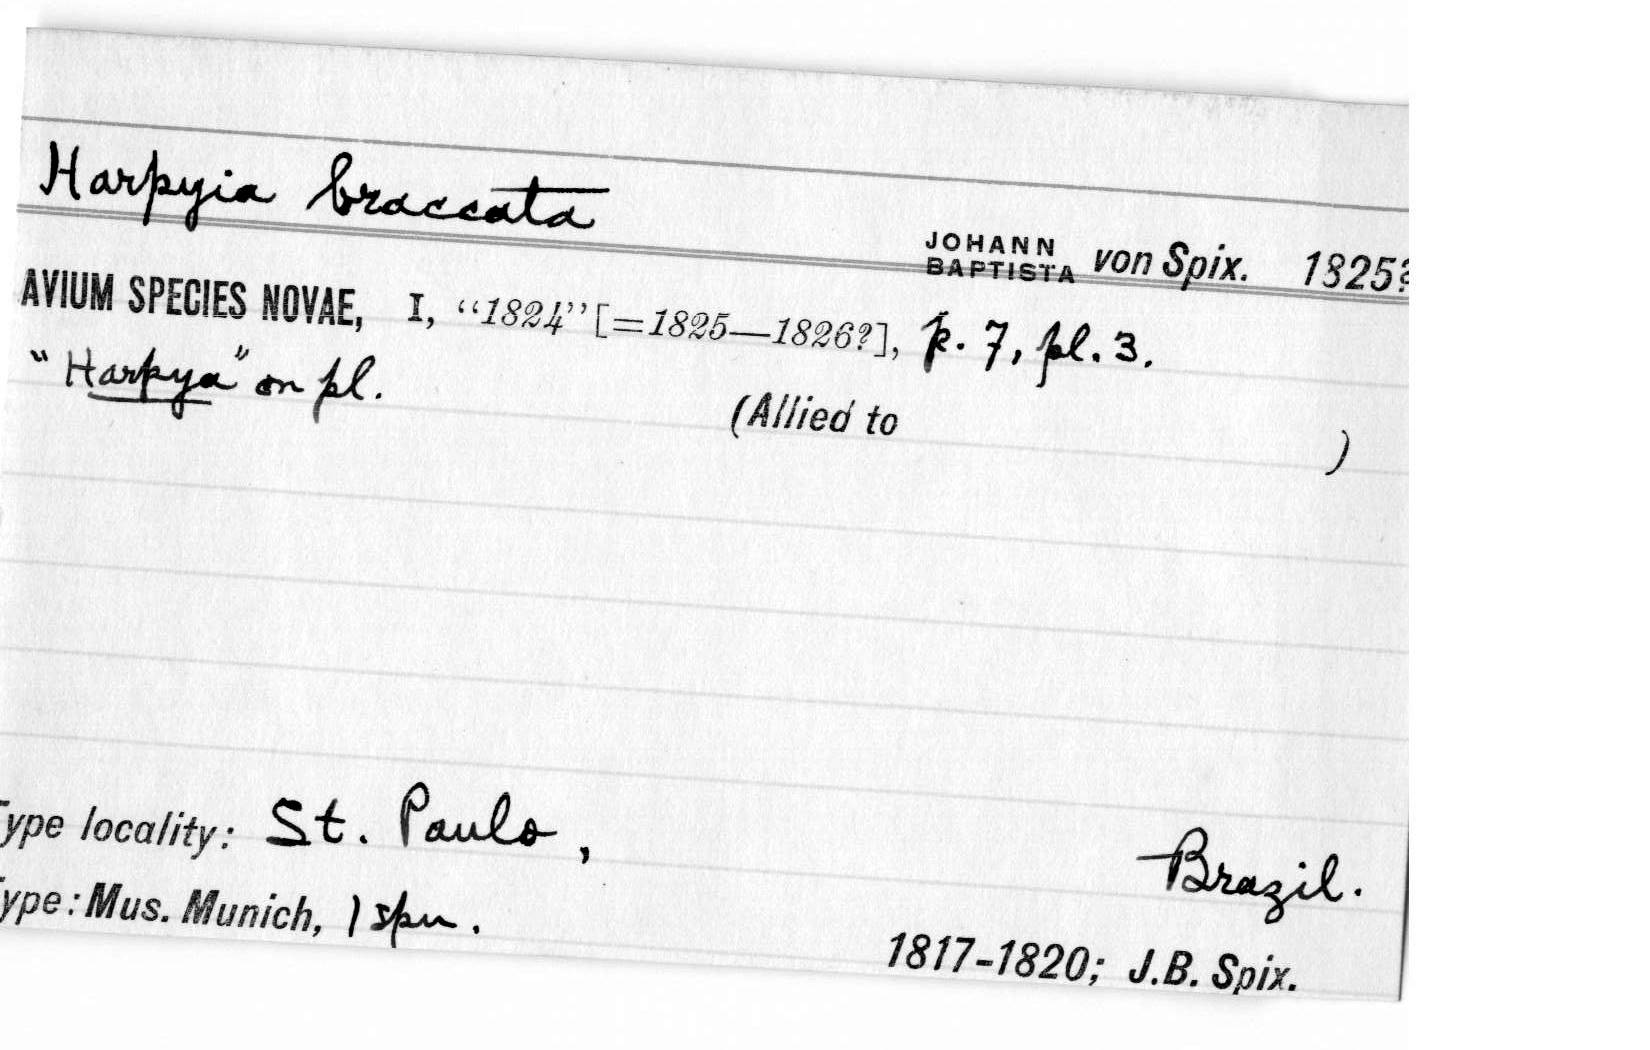 Harpyia braccata
JOHANN BAPTISTA von Spix. 1825?
AVIUM SPECIES NOVAE, I, “1824” [=1825—1826?], p. 7, pl. 3.
"Harpya" on pl.
(Allied to )
Type locality: St. Paulo, Brazil.
Type: Mus. Munich, 1 spn.
1817-1820; J.B. Spix.